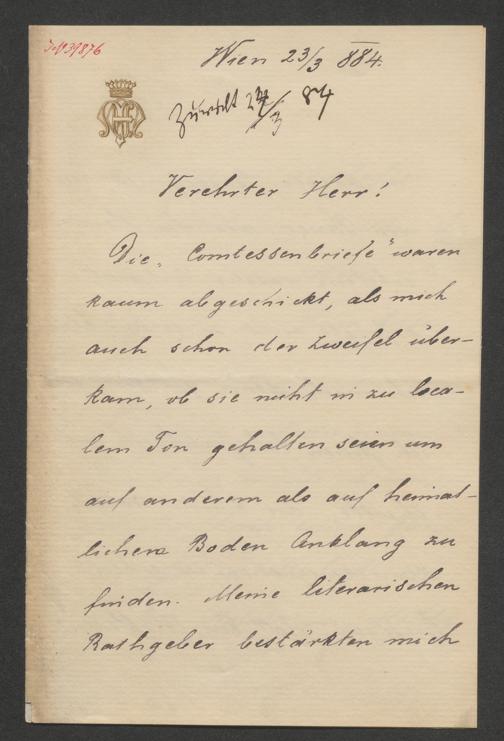 IN 39876
Wien 23/3 884.
Zürich 24/3 84
Verehrter Herr!
Die „Comtessenbriefe" waren
kaum abgeschickt, als mich
auch schon der Zweifel über-
kam, ob sie nicht in zu loca-
lem Ton gehalten seien um
auf anderem als auf heimat-
lichem Boden Anklang zu
finden. Meine literarischen
Rathgeber bestärkten mich